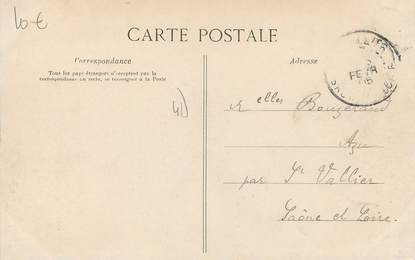 10 €
CARTE POSTALE
Correspondance
Tous les pays étrangers n'acceptent pas la
correspondance au recto, se renseigner à la Poste
Adresse
FEVR
4D
elles
par St Vallier
Saône et Loire.